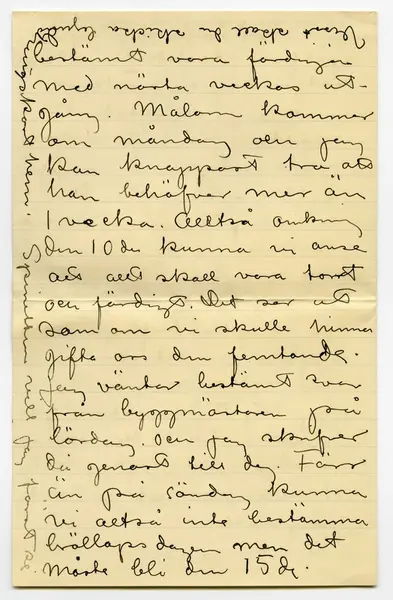 bestämt vara färdiga
med nästa veckas ut-
gång. Målarn kommer
om måndag och jag
kan knappast tro att
han behöfver mer än
1 vecka. Alltså omkring
den 10de kunna vi anse
att allt skall vara torrt
och färdigt. Det ser ut
som om vi skulle hinna
gifta oss den femtonde.
Jag väntar bestämt svar
från byggmästaren på
lördag. och jag skrifver
då genast till dig. Förr
än på söndag kunna
vi alltså inte bestämma
bröllopsdagen men det
måste bli den 15de.
skall du skicka
hem.
vill jag först se